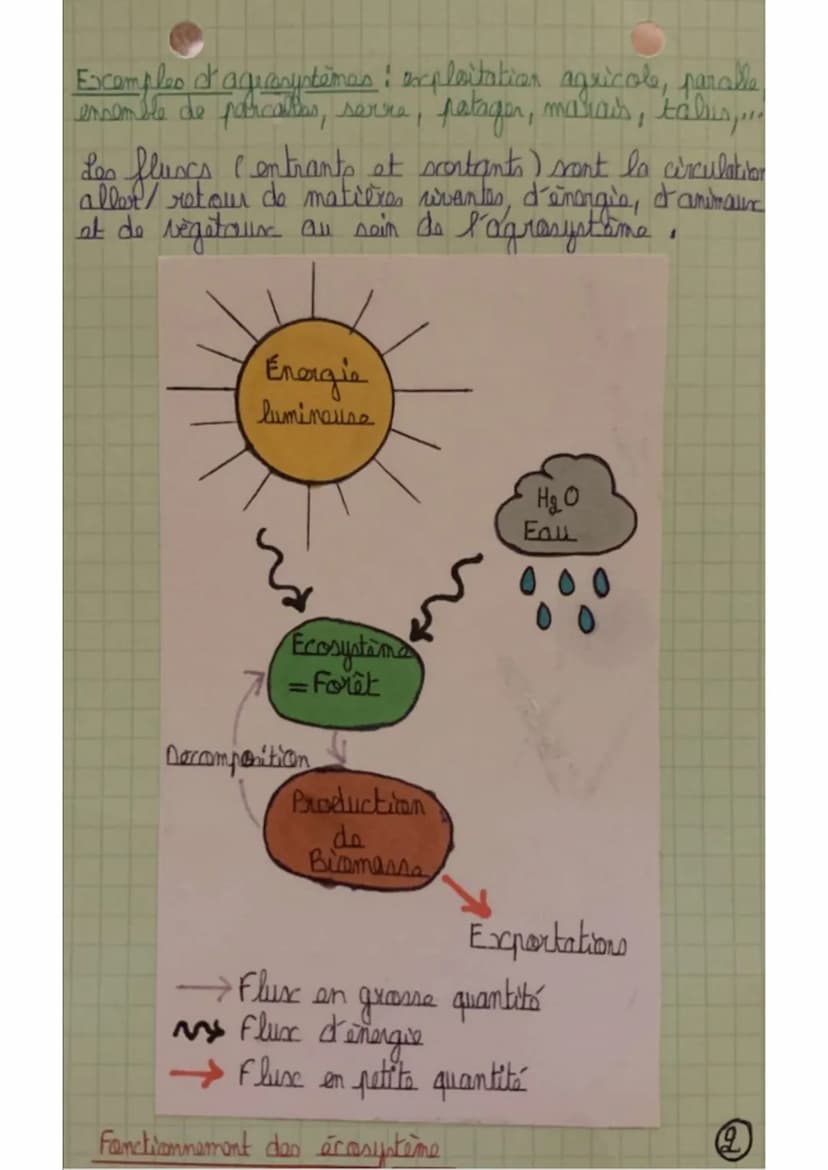 Exemples d'agrosystèmes : exploitation agricole, parcelle,
ensemble de parcelles, serre, potager, marais, talus,...
Les fluxs (entrants et sortants) sont la circulation
aller/retour de matières vivantes, d'énergie, d'animaux
et de végétaux au sein de l'agrosystème.
Énergie
lumineuse
H2O
Eau
Ecosystème
= Forêt
Décomposition
Production
de
Biomasse
Exportations
Flux en grosse quantité
Flux d'énergie
Flux en petite quantité
Fonctionnement des écosystème
2